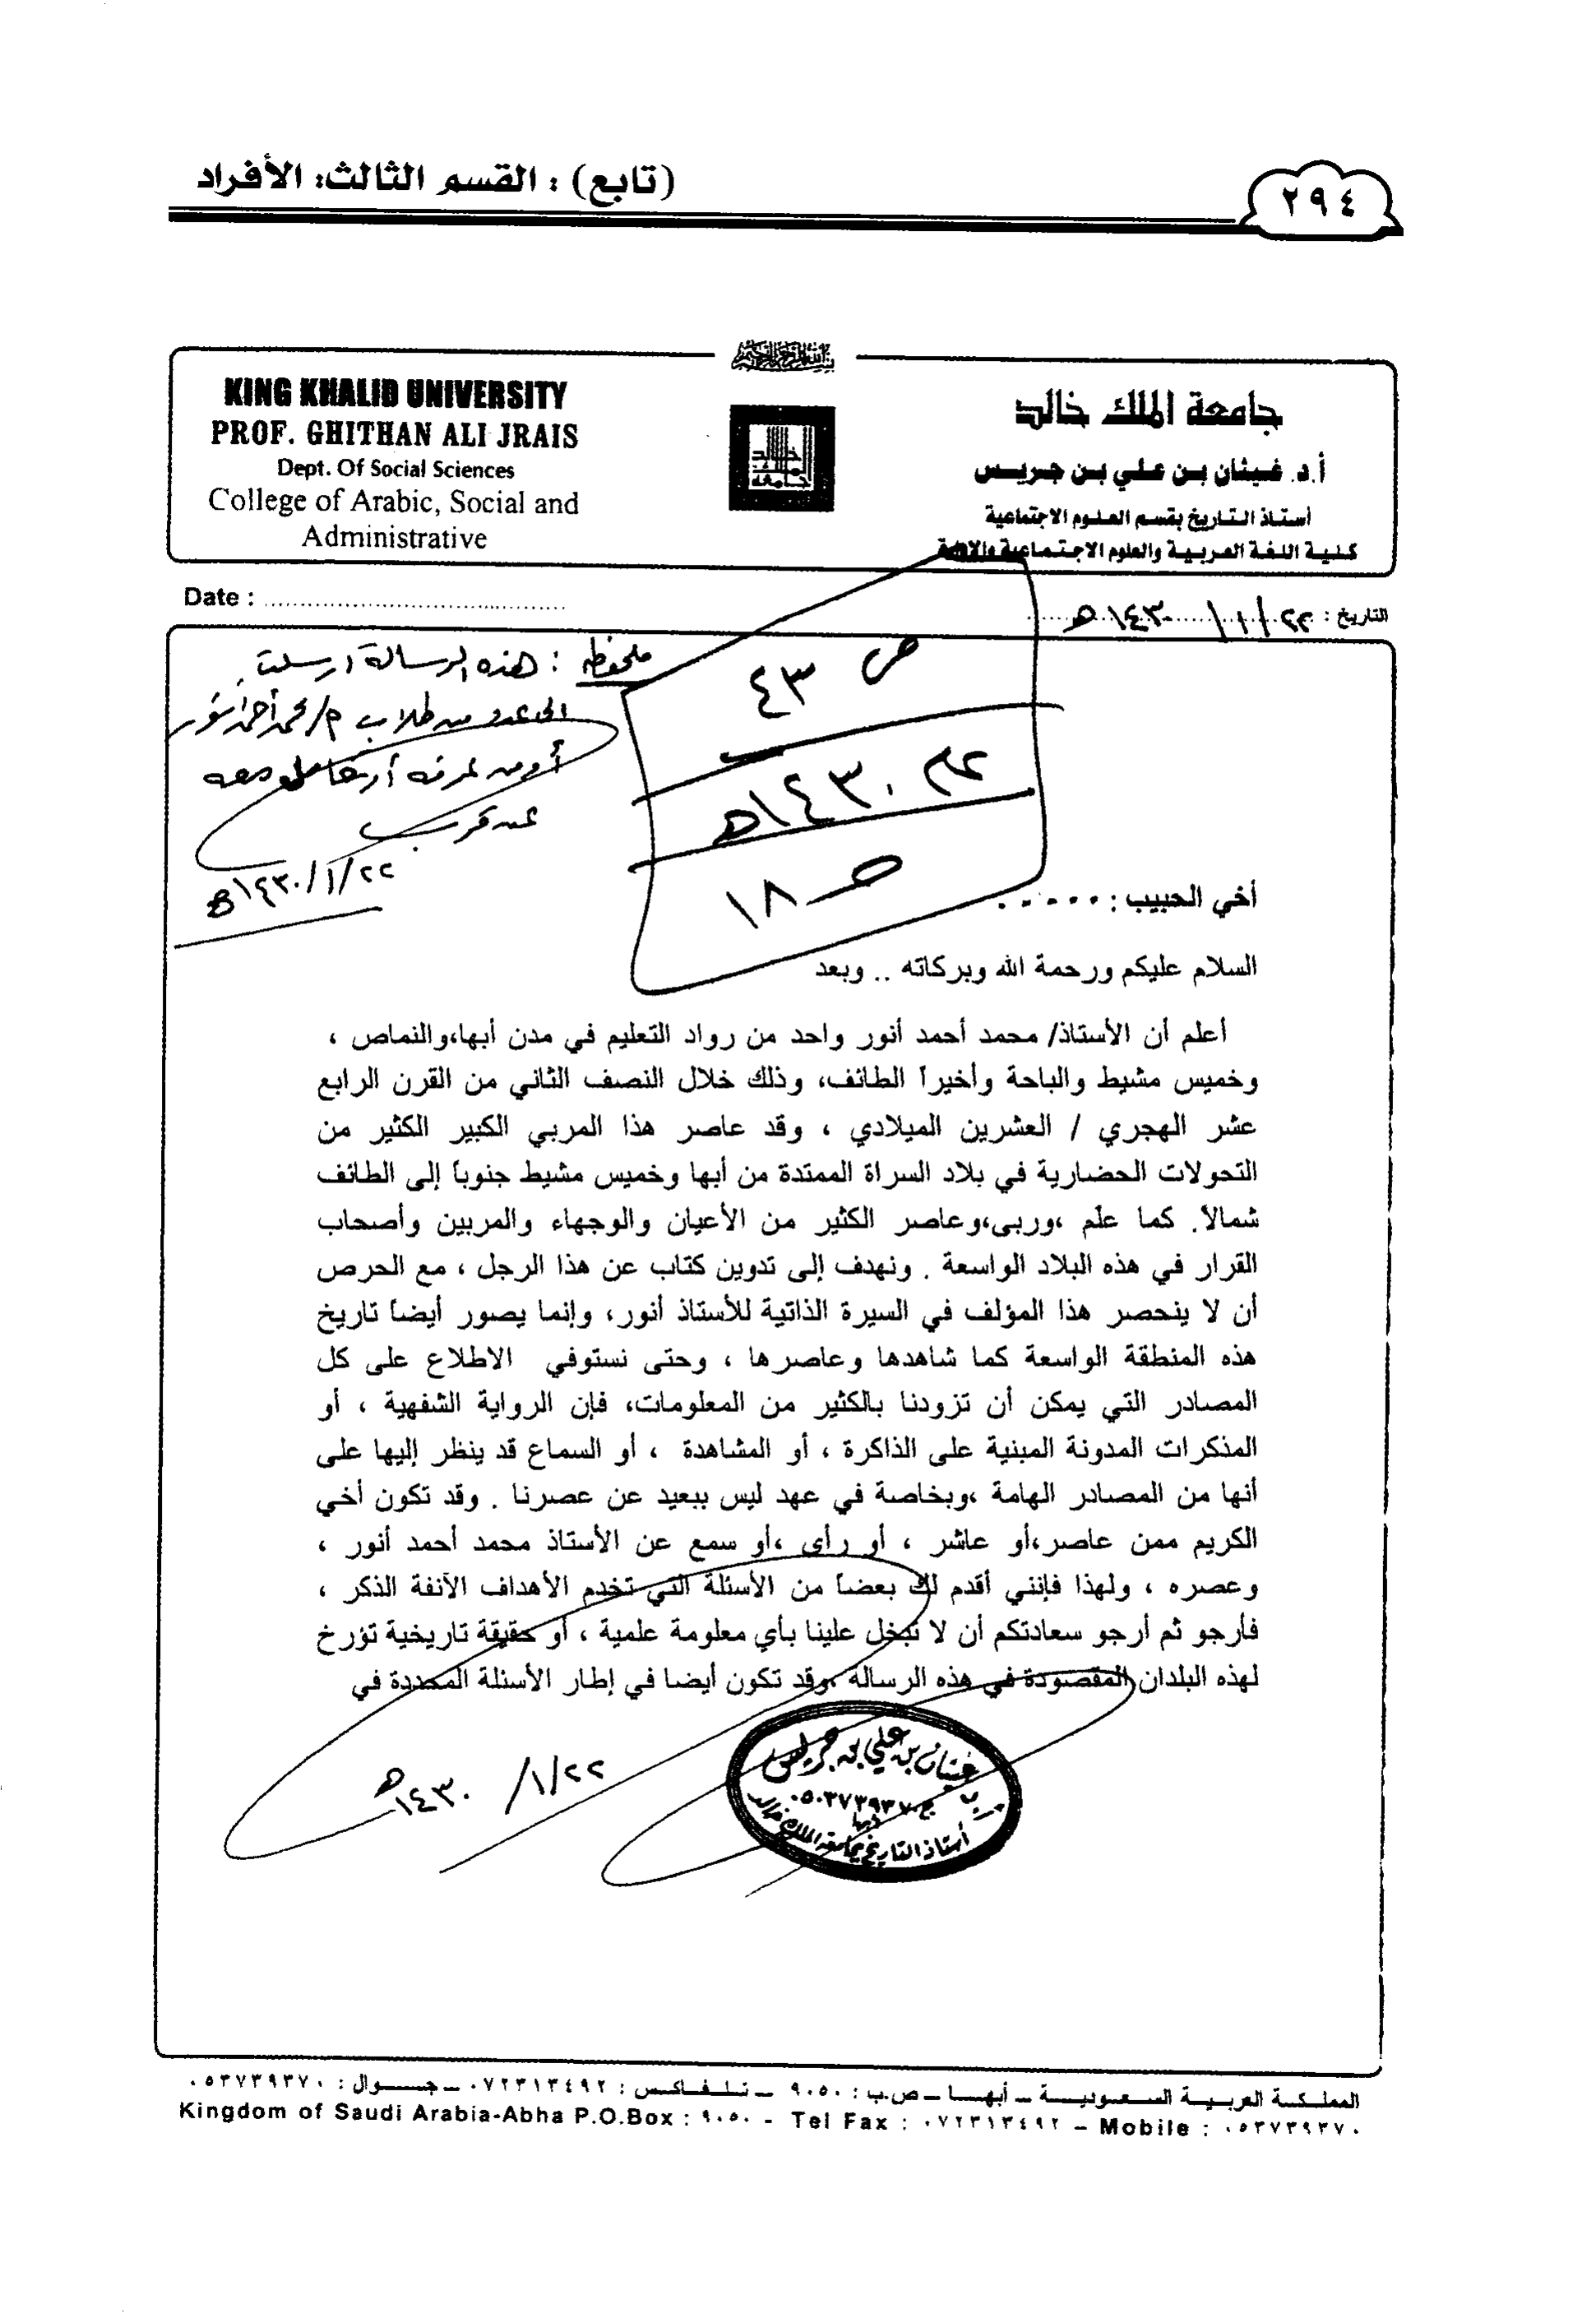 (تابع) : القسم الثالث: الأفراد
٢٩٤
جامعة الملك خالد
أ.د. غيثان بن علي بن جريس
أستاذ التاريخ بقسم العلوم الاجتماعية
كلية اللغة العربية والعلوم الاجتماعية والإدارية
KING KHALID UNIVERSITY
PROF. GHITHAN ALI JRAIS
Dept. Of Social Sciences
College of Arabic, Social and
Administrative
التاريخ : ٢٢/١/١٤٣٠هـ
Date :
ملحوظة : هذه الرسالة أرسلت
إلى عدد من طلاب م/محمد أحمد أنور
عن قرب
٢٢/١/١٤٣٠هـ
ص ٤٣
١٤٣٠هـ
ص ١٨
أخي الحبيب : .....
السلام عليكم ورحمة الله وبركاته .. وبعد
أعلم أن الأستاذ/ محمد أحمد أنور واحد من رواد التعليم في مدن أبها،والنماص ،
وخميس مشيط والباحة وأخيراً الطائف، وذلك خلال النصف الثاني من القرن الرابع
عشر الهجري / العشرين الميلادي ، وقد عاصر هذا المربي الكبير الكثير من
التحولات الحضارية في بلاد السراة الممتدة من أبها وخميس مشيط جنوباً إلى الطائف
شمالاً. كما علّم ،وربى،وعاصر الكثير من الأعيان والوجهاء والمربين وأصحاب
القرار في هذه البلاد الواسعة . ونهدف إلى تدوين كتاب عن هذا الرجل ، مع الحرص
أن لا ينحصر هذا المؤلف في السيرة الذاتية للأستاذ أنور، وإنما يصور أيضاً تاريخ
هذه المنطقة الواسعة كما شاهدها وعاصرها ، وحتى نستوفي الاطلاع على كل
المصادر التي يمكن أن تزودنا بالكثير من المعلومات، فإن الرواية الشفهية ، أو
المذكرات المدونة المبنية على الذاكرة ، أو المشاهدة ، أو السماع قد ينظر إليها على
أنها من المصادر الهامة ،وبخاصة في عهد ليس ببعيد عن عصرنا . وقد تكون أخي
الكريم ممن عاصر،أو عاشر ، أو رأى ،أو سمع عن الأستاذ محمد أحمد أنور ،
وعصره ، ولهذا فإنني أقدم لك بعضاً من الأسئلة التي تخدم الأهداف الآنفة الذكر ،
فأرجو ثم أرجو سعادتكم أن لا تبخل علينا بأي معلومة علمية ، أو حقيقة تاريخية تؤرخ
لهذه البلدان المقصودة في هذه الرسالة ،وقد تكون أيضا في إطار الأسئلة المحددة في
غيثان بن علي بن جريس
٠٥٠٣٧٣٩٣٧٠
أبها
أستاذ التاريخ بجامعة الملك خالد
٢٢/١/١٤٣٠هـ
المملكة العربية السعودية – أبها – ص.ب : ٩٠٥٠ – تلفاكس : ٠٧٢٣١٣٤٩٢ – جوال : ٠٥٣٧٣٩٣٧٠
Kingdom of Saudi Arabia-Abha P.O.Box : ٩٠٥٠ - Tel Fax : ٠٧٢٣١٣٤٩٢ – Mobile : ٠٥٣٧٣٩٣٧٠